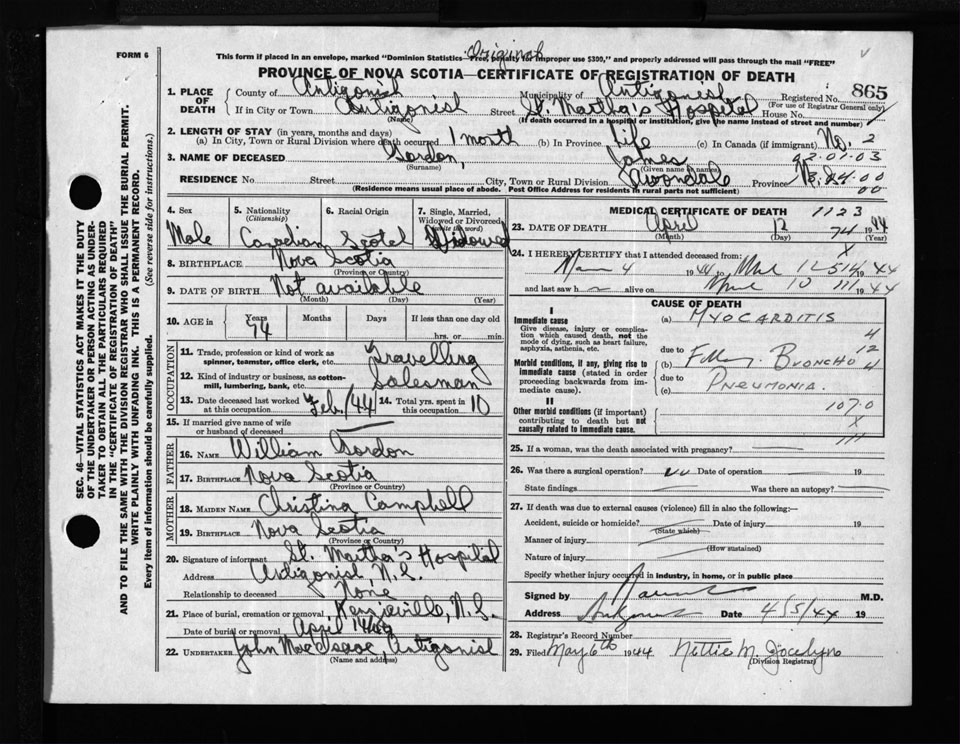 Original
FORM 6
This form if placed in an envelope, marked "Dominion Statistics—Free, penalty for improper use $300," and properly addressed will pass through the mail "FREE"
PROVINCE OF NOVA SCOTIA—CERTIFICATE OF REGISTRATION OF DEATH
865
1. PLACE OF DEATH County of Antigonish Municipality of Antigonish Registered No.
(For use of Registrar General only)
If in City or Town Antigonish Street St. Martha's Hospital House No.
(Name) (If death occurred in a hospital or institution, give the name instead of street and number)
2. LENGTH OF STAY (in years, months and days)
(a) In City, Town or Rural Division where death occurred 1 month (b) In Province Life (c) In Canada (if immigrant) No. 2
92-01-03
3. NAME OF DECEASED Gordon, James
(Surname) (Given name or names)
RESIDENCE No Street City, Town or Rural Division Avondale Province N.S.
24-00
00
(Residence means usual place of abode. Post Office Address for residents in rural parts not sufficient)
4. Sex 5. Nationality (Citizenship) 6. Racial Origin 7. Single, Married, Widowed or Divorced (write the word)
Male Canadian Scotch Widowed
8. BIRTHPLACE Nova Scotia
(Province or Country)
9. DATE OF BIRTH Not available
(Month) (Day) (Year)
10. AGE in Years Months Days If less than one day old
74 hrs. or min.
OCCUPATION
11. Trade, profession or kind of work as spinner, teamster, office clerk, etc. Travelling
12. Kind of industry or business, as cotton-mill, lumbering, bank, etc. Salesman
13. Date deceased last worked at this occupation Feb/44 14. Total yrs. spent in this occupation 10
15. If married give name of wife or husband of deceased
FATHER
16. NAME William Gordon
17. BIRTHPLACE Nova Scotia
(Province or Country)
MOTHER
18. MAIDEN NAME Christina Campbell
19. BIRTHPLACE Nova Scotia
(Province or Country)
20. Signature of informant St. Martha's Hospital
Address Antigonish, N.S.
Relationship to deceased None
21. Place of burial, cremation or removal Kenzieville, N.S.
Date of burial or removal April 14
22. UNDERTAKER John MacIsaac, Antigonish
(Name and address)
MEDICAL CERTIFICATE OF DEATH 1123
23. DATE OF DEATH April 12 74 1944
(Month) (Day) (Year)
X
24. I HEREBY CERTIFY that I attended deceased from:
4 1944 to 12 514 1944
and last saw h alive on 10 111 1944
CAUSE OF DEATH
I
Immediate cause
Give disease, injury or complication which caused death, not the mode of dying, such as heart failure, asphyxia, asthenia, etc.
(a) MYOCARDITIS
4
due to 12
Morbid conditions, if any, giving rise to immediate cause (stated in order proceeding backwards from immediate cause).
(b) BRONCHO 4
due to PNEUMONIA.
(c)
II
Other morbid conditions (if important) contributing to death but not causally related to immediate cause.
107.0
X
111
25. If a woman, was the death associated with pregnancy?
26. Was there a surgical operation? no Date of operation 19
State findings Was there an autopsy?
27. If death was due to external causes (violence) fill in also the following:—
Accident, suicide or homicide? Date of injury 19
(State which)
Manner of injury
(How sustained)
Nature of injury
Specify whether injury occurred in industry, in home, or in public place
Signed by M.D.
Address Antigonish Date 4/5/44 19
28. Registrar's Record Number
29. Filed May 6th 1944 Nettie M. Jocelyn
(Division Registrar)
SEC. 46—VITAL STATISTICS ACT MAKES IT THE DUTY
OF THE UNDERTAKER OR PERSON ACTING AS UNDER-
TAKER TO OBTAIN ALL THE PARTICULARS REQUIRED
IN THE "CERTIFICATE OF REGISTRATION OF DEATH"
AND TO FILE THE SAME WITH THE DIVISION REGISTRAR WHO SHALL ISSUE THE BURIAL PERMIT.
WRITE PLAINLY WITH UNFADING INK. THIS IS A PERMANENT RECORD.
Every item of information should be carefully supplied. (See reverse side for instructions.)